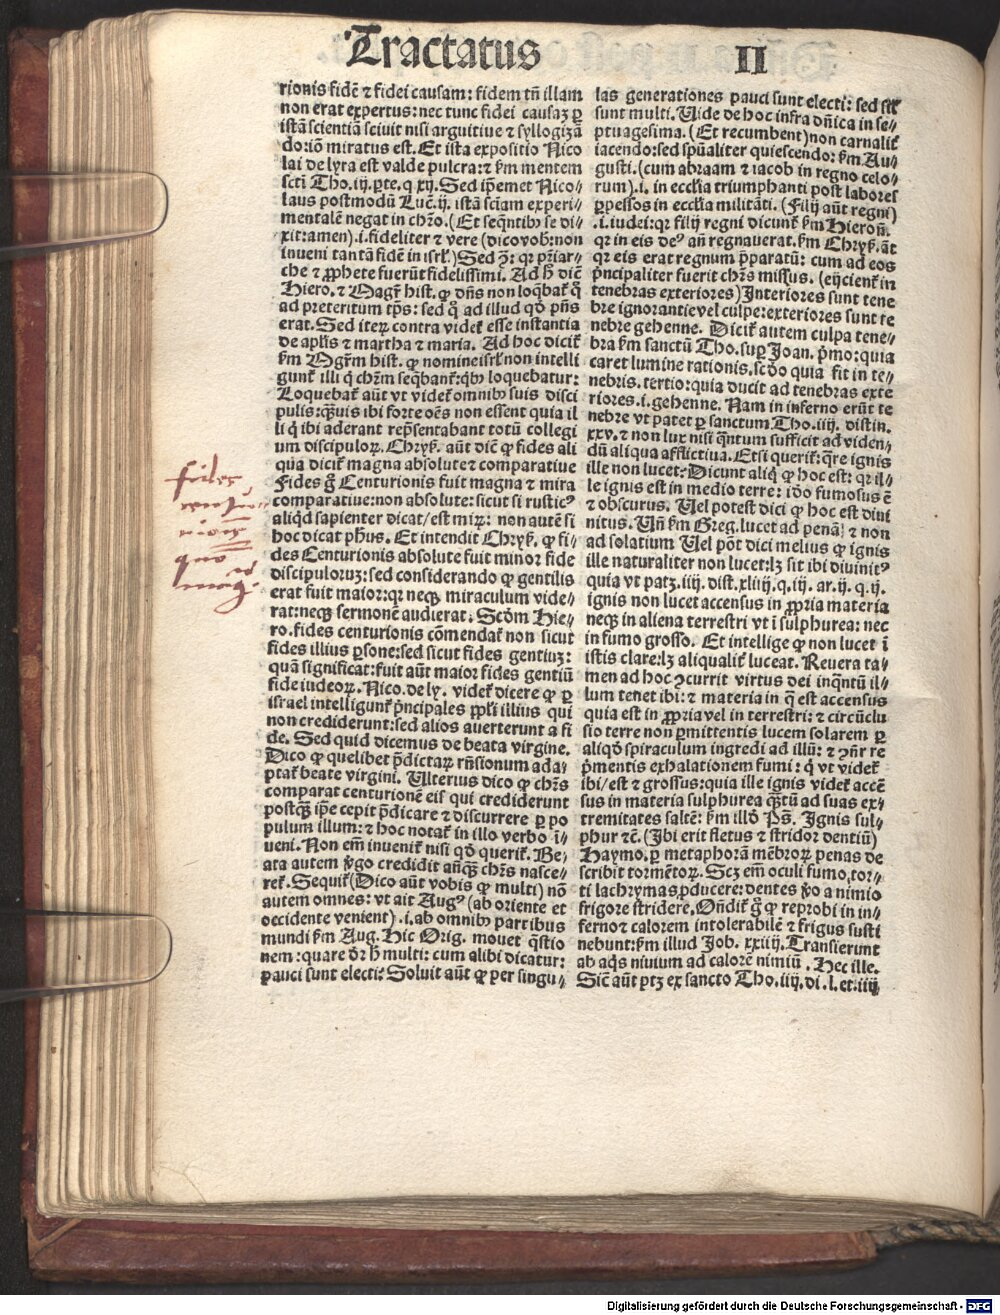 Tractatus II
rionis fidē ⁊ fidei causam: fidem tn̄ illam
non erat expertus: nec tunc fidei causaʒ ꝑ
istā scientiā sciuit nisi arguitiue ⁊ syllogizā
do: iō miratus est. Et ista expositio Nico
lai de lyra est valde pulcra: ⁊ ẜm mentem
scti Tho. iij. ꝑte. q. xij. Sed ip̄emet Nico⸗
laus postmodū Luc̄. ij. istā sciam experi⸗
mentalē negat in chr̄o. (Et seqn̄tibꝰ se di⸗
xit: amen) .i. fideliter ⁊ vere (dico vob: non
inueni tantā fidē in isrł.) Sed ꝯ̄: qꝛ pr̄iar⸗
che ⁊ ꝓphete fuerūt fidelissimi. Ad h̄ dic̄
Hiero. ⁊ Magr̄ hist. ꝙ dn̄s non loqbat̄ qͦ
ad preteritum tp̄s: sed qͦ ad illud qd̄ pn̄s
erat. Sed iteꝝ contra videt̄ esse instantia
de apl̄is ⁊ martha ⁊ maria. Ad hoc dicit̄
ẜm Mgr̄m hist. ꝙ nomine isrł non intelli
gunt̄ illi q̇ chr̄m seqbant̄: qͥbꝰ loquebatur:
Loquebat̄ aūt vt videt̄ omnibꝰ suis disci
pulis: qͣuis ibi forte oēs non essent quia il
li q̇ ibi aderant rep̄sentabant totū collegi
um discipuloꝝ. Chryẜ. aūt dic̄ ꝙ fides ali
qua dicit̄ magna absolute ⁊ comparatiue
Fides g̊ Centurionis fuit magna ⁊ mira
comparatiue: non absolute: sicut si rusticꝰ
aliqd̄ sapienter dicat/ est miꝝ: non autē si
hoc dicat ph̄us. Et intendit Chryẜ. ꝙ fi⸗
des Centurionis absolute fuit minor fide
discipuloruʒ: sed considerando ꝙ gentilis
erat fuit maior: qꝛ neqꝫ miraculum vide⸗
rat: neqꝫ sermonē audierat. Scd̄m Hie⸗
ro. fides centurionis cōmendat̄ non sicut
fides illius ꝑsone: sed sicut fides gentiuʒ:
quā significat: fuit aūt maior fides gentiū
fide iudeoꝝ. Nico. de ly. videt̄ dicere ꝙ ꝑ
israel intelligunt̄ pͥncipales ppl̄i illius qui
non crediderunt: sed alios auerterunt a fi
de. Sed quid dicemus de beata virgine.
Dico ꝙ quelibet p̄dictaꝝ rn̄sionum ada⸗
ptat̄ beate virgini. Ulterius dico ꝙ chr̄s
comparat centurionē eis qui crediderunt
postqͣʒ ip̄e cepit p̄dicare ⁊ discurrere ꝑ po
pulum illum: ⁊ hoc notat̄ in illo verbo ī⸗
ueni. Non em̄ inuenit̄ nisi qd̄ querit̄. Be⸗
ata autem v̊go credidit anteqͣʒ chr̄s nasce⸗
ret̄. Sequit̄ (Dico aūt vobis ꝙ multi) nō
autem omnes: vt ait Augꝰ (ab oriente et
occidente venient) .i. ab omnibꝰ partibus
mundi ẜm Aug. Hic Orig. mouet qͣstio
nem: quare dr̄ h̄ multi: cum alibi dicatur:
pauci sunt electi: Soluit aūt ꝙ per singu⸗
las generationes pauci sunt electi: sed sił
sunt multi. Uide de hoc infra dn̄ica in se⸗
ptuagesima. (Et recumbent) non carnalit̄
iacendo: sed spūaliter quiescendo: ẜm Au⸗
gusti. (cum abraam ⁊ iacob in regno celo⸗
rum) .i. in eccl̄ia triumphanti post labores
ꝑpessos in eccl̄ia militāti. (Filij aūt regni)
.i. iudei: qꝛ filij regni dicunt̄ ẜm Hieroñ.
qꝛ in eis deꝰ an̄ regnauerat. ẜm Chryẜ. āt
qꝛ eis erat regnum p̄paratū: cum ad eos
pͥncipaliter fuerit chr̄s missus. (eijcient̄ in
tenebras exteriores) Interiores sunt tene
bre ignorantie vel culpe: exteriores sunt te
nebre gehenne. Dicit̄ autem culpa tene⸗
bra ẜm sanctū Tho. sup̄ Joan. pͥmo: quia
caret lumine rationis. scd̄o quia fit in te⸗
nebris. tertio: quia ducit ad tenebras exte
riores .i. gehenne. Nam in inferno erūt te
nebre vt patet ꝑ sanctum Tho. iiij. distin.
xxv. ⁊ non lux nisi qͣntum sufficit ad viden⸗
dū aliqua afflictiua. Etsi querit̄: qͣre ignis
ille non lucet: Dicunt aliq̇ ꝙ hoc est: qꝛ il⸗
le ignis est in medio terre: iō̄ fumosus ē
⁊ obscurus. Uel potest dici ꝙ hoc est diui
nitus. Un̄ ẜm Greg. lucet ad penā: ⁊ non
ad solatium Uel pōt dici melius ꝙ ignis
ille naturaliter non lucet: lʒ sit ibi diuinitꝰ
quia vt patʒ. iiij. dist. xliiij. q. iij. ar. ij. q. ij.
ignis non lucet accensus in ꝓpria materia
neqꝫ in aliena terrestri vt ī sulphurea: nec
in fumo grosso. Et intellige ꝙ non lucet ī
istis clare: lʒ aliqualit̄ luceat. Reuera ta⸗
men ad hoc ꝯcurrit virtus dei inqͣntū il⸗
lum tenet ibi: ⁊ materia in q̄ est accensus
quia est in ꝓpria vel in terrestri: ⁊ circūclu
sio terre non ꝑmittentis lucem solarem ꝑ
aliqd̄ spiraculum ingredi ad illū: ⁊ ꝯn̄r re
pͥmentis exhalationem fumi: q̇ vt videt̄
ibi/ est ⁊ grossus: quia ille ignis videt̄ accē
sus in materia sulphurea qͣʒtū ad suas ex⸗
tremitates saltē: ẜm illd̄ Ps̄. Ignis sul⸗
phur ⁊c̄. (Ibi erit fletus ⁊ stridor dentiū)
Haymo. ꝑ metaphorā mēbroꝝ penas de
scribit tormētoꝝ. Scʒ em̄ oculi fumo, tor⸗
ti lachrymas ꝓducere: dentes v̊o a nimio
frigore stridere. On̄dit̄ g̊ ꝙ reprobi in in⸗
ferno ⁊ calorem intolerabilē ⁊ frigus susti
nebunt: ẜm illud Job. xxiiij. Transierunt
ab aqͥs niuium ad calorē nimiū. Hec ille.
Sic̄ aūt ptʒ ex sancto Tho. iiij. di. l. et. iiij
fides
centu⸗
rionis
quō
magͣ.
Digitalisierung gefördert durch die Deutsche Forschungsgemeinschaft - DFG